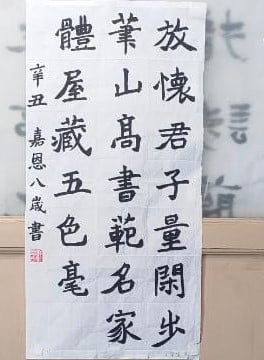 放懷君子量閑出
筆山髙書範名家
體屋藏五色毫
辛丑 嘉恩八歲書